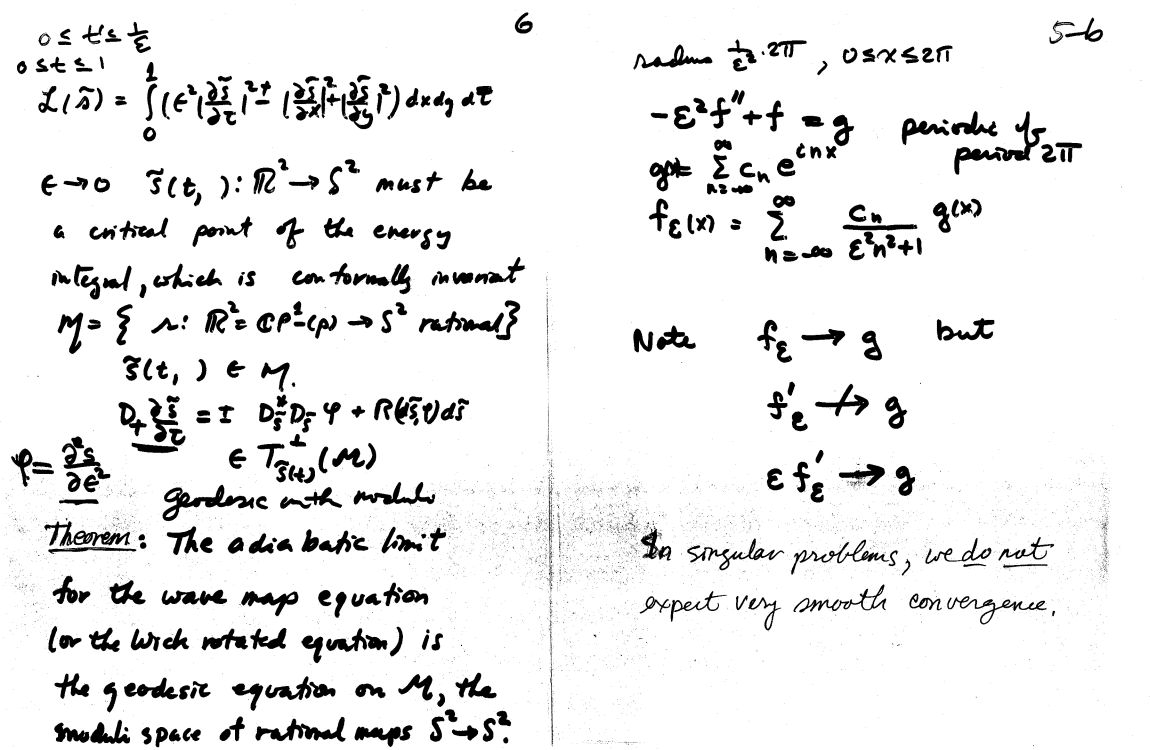 6
0 ≤ t' ≤ 1/ε
0 ≤ t ≤ 1
ℒ(s̃) = ∫₀¹ (ε²|∂s̃/∂τ|² ∓ |∂s̃/∂x|² + |∂s̃/∂y|²) dx dy dτ
ε → 0 s̃(t, ) : ℝ² → S² must be
a critical point of the energy
integral, which is conformally invariant
M = { s: ℝ² = CP¹-(p) → S² rational}
s̃(t, ) ∈ M.
D₊ ∂s̃/∂τ = ± D*_s̃ D_s̃ φ + R(ds̃,φ)ds̃
φ = ∂²s/∂ε² ∈ T^⊥_s̃(t) (M)
geodesic on the moduli
Theorem: The adiabatic limit
for the wave map equation
(or the Wick rotated equation) is
the geodesic equation on M, the
moduli space of rational maps S² → S².
5-6
radius 1/ε² · 2π , 0 ≤ x ≤ 2π
-ε² f'' + f = g periodic of
period 2π
g = Σ_{n=-∞}^{∞} c_n e^{inx}
f_ε(x) = Σ_{n=-∞}^{∞} c_n/(ε²n²+1) g(x)
Note f_ε → g but
f'_ε ↛ g
ε f'_ε → g
In singular problems, we do not
expect very smooth convergence.